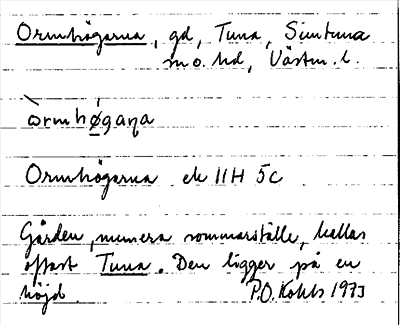 Ormhögarna, gd, Tuna, Simtuna
sn o. hd, Västm. l.
òrmhǿgaɳa
Ormhögarna ek 11H 5c
Gården, numera sommarställe, kallas
oftast Tuna. Den ligger på en
höjd. P.O. Kohls 1973